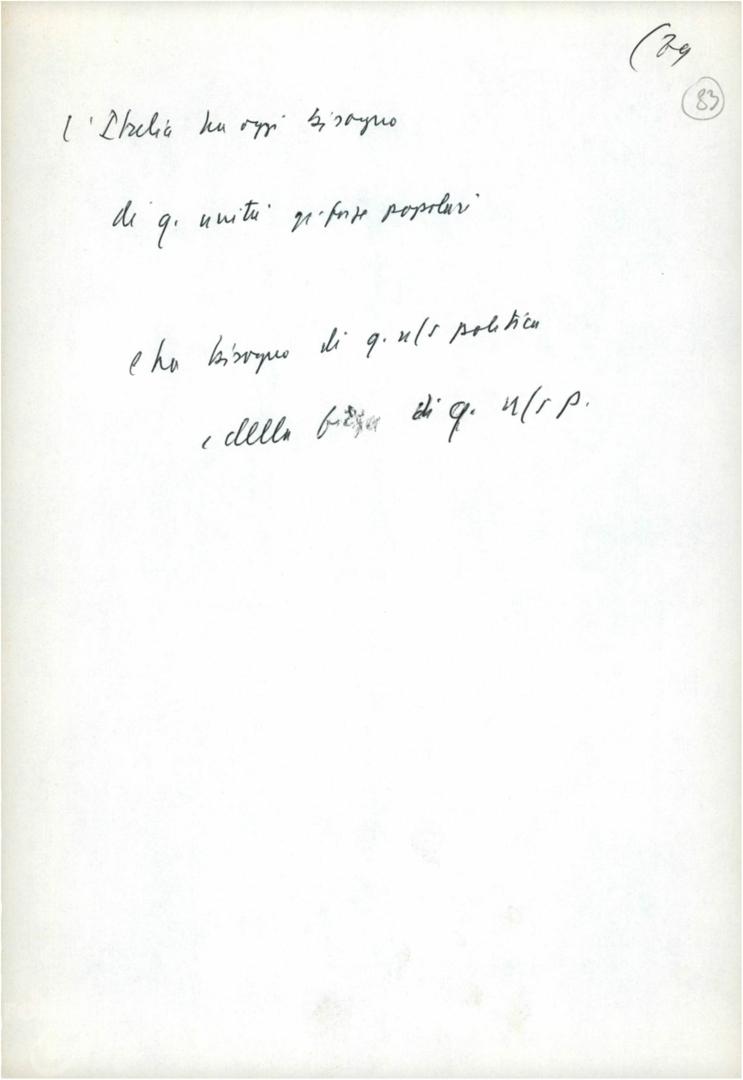 (79
83
L'Italia ha oggi bisogno
di q. unità forze popolari
e ha bisogno di q. n/s politica
e della di q. n/s p.